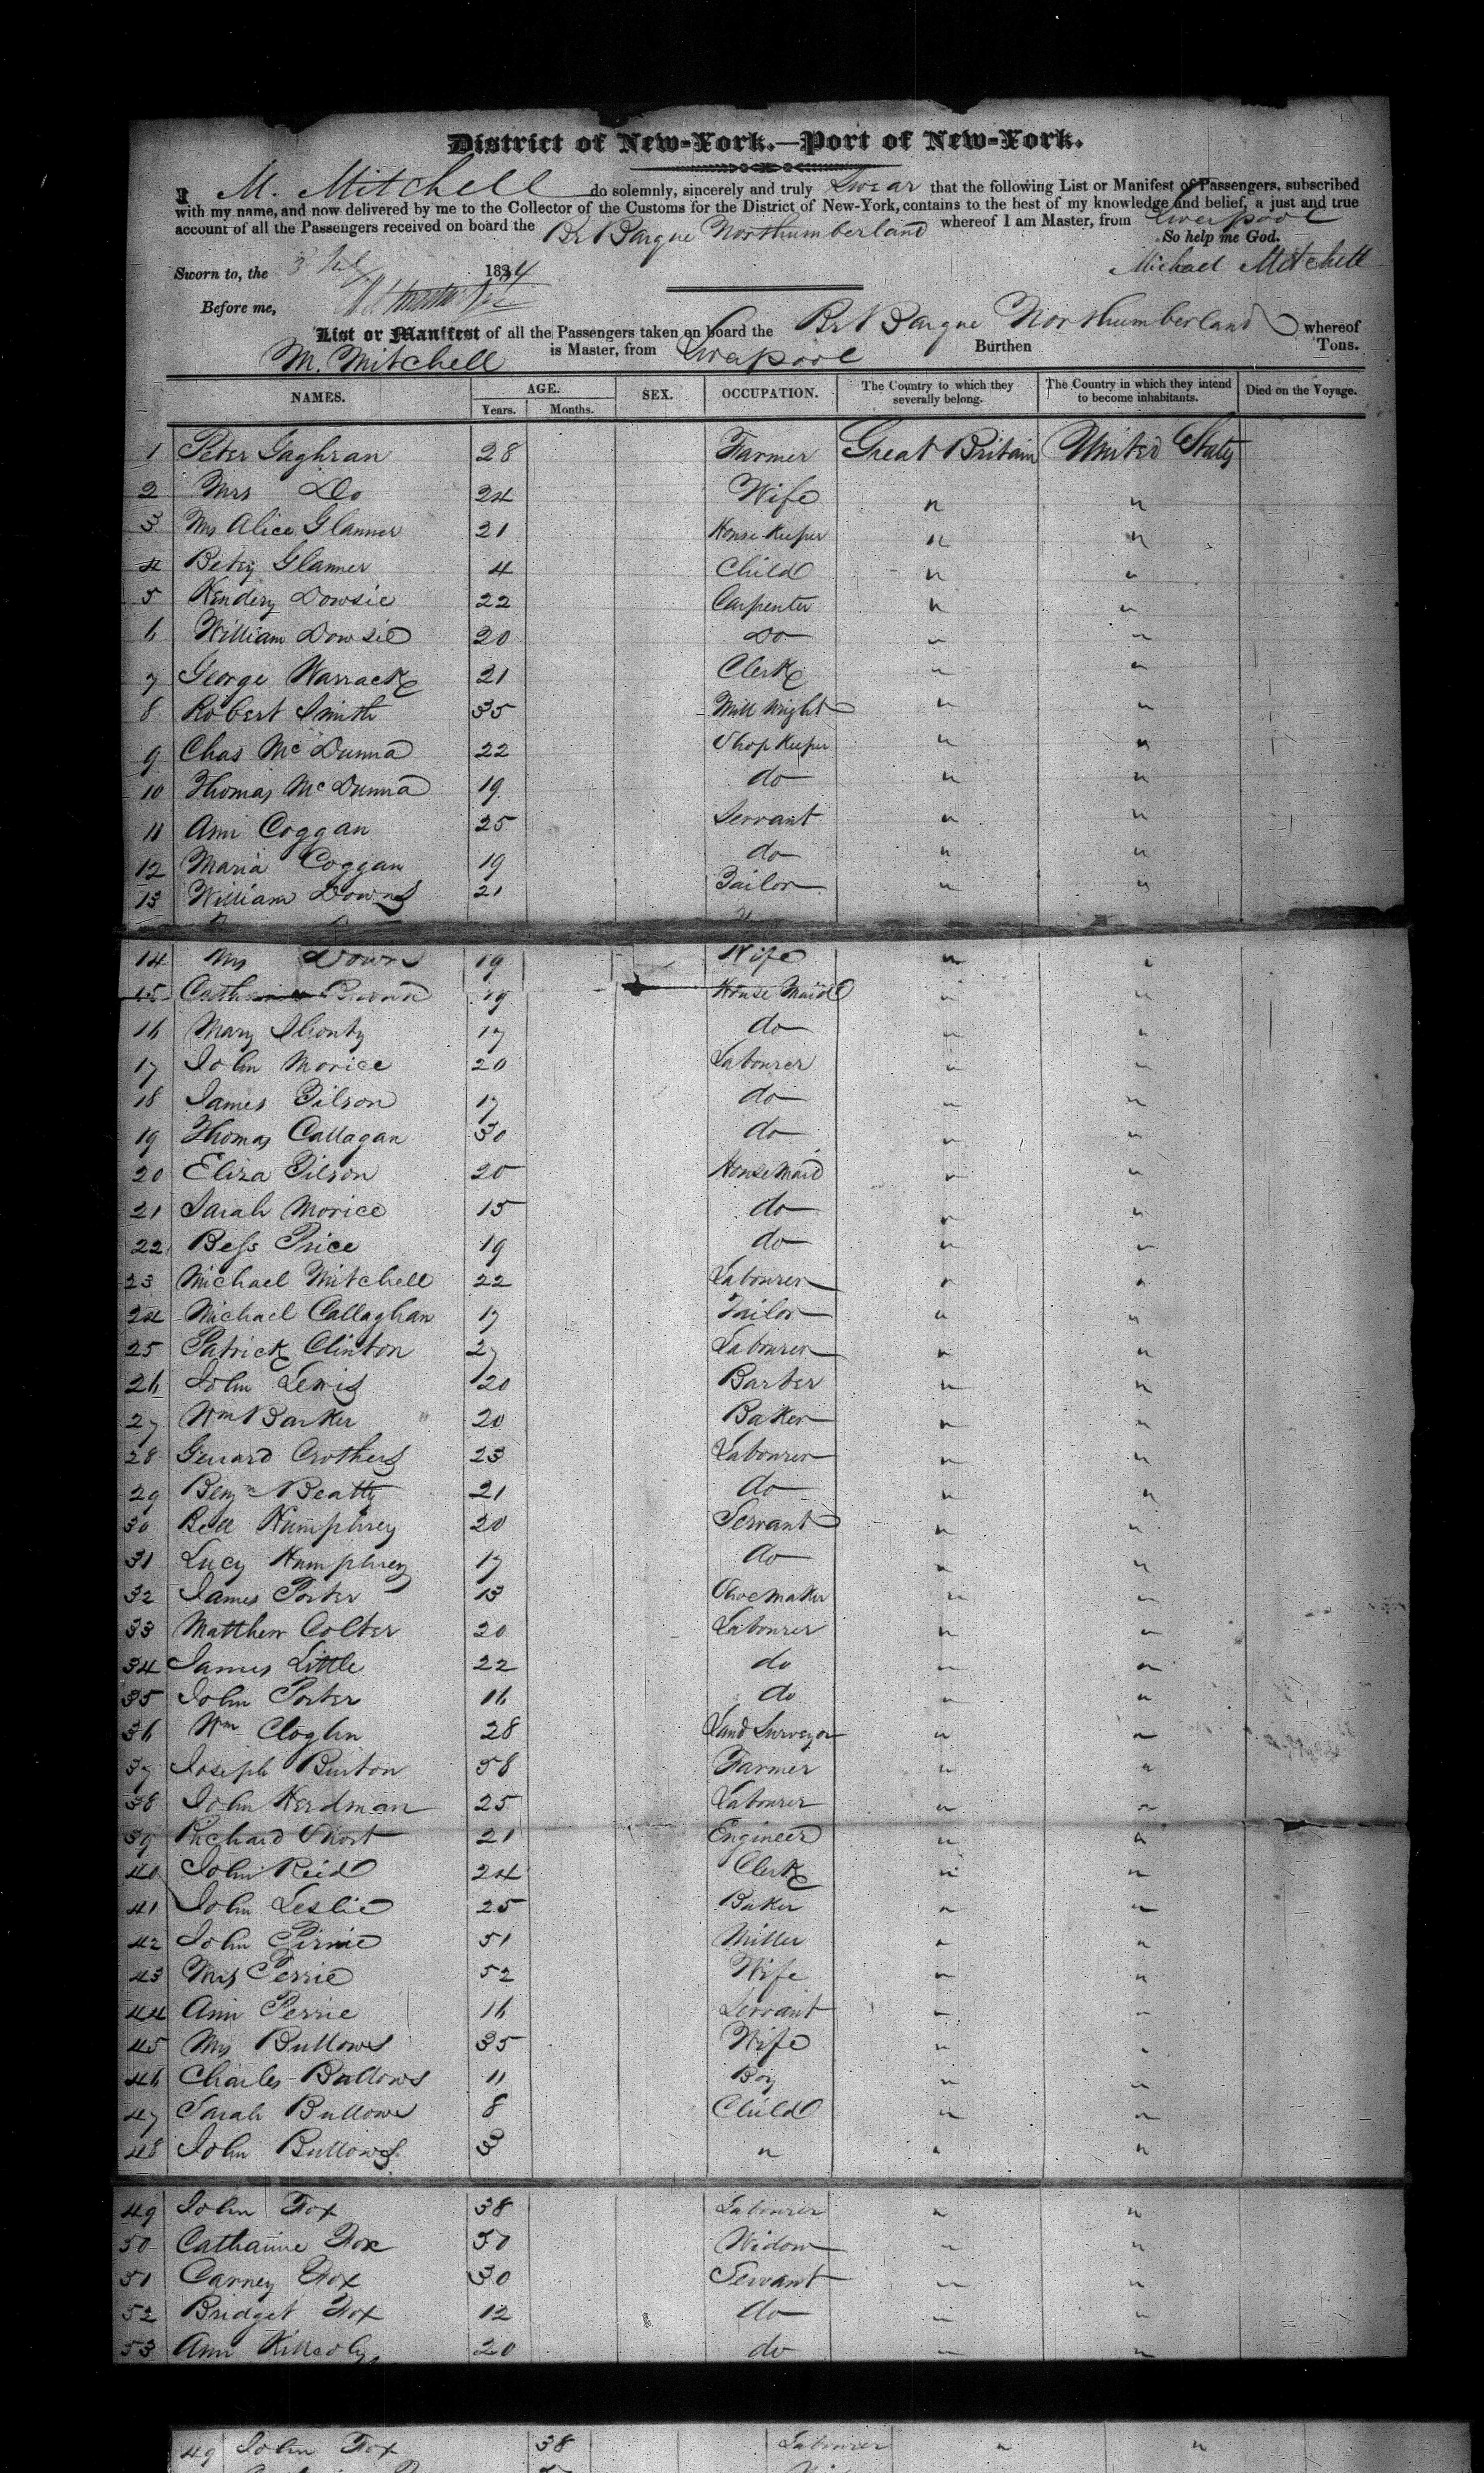 District of New-York.—Port of New-York.
I M. Mitchell do solemnly, sincerely and truly Swear that the following List or Manifest of Passengers, subscribed
with my name, and now delivered by me to the Collector of the Customs for the District of New-York, contains to the best of my knowledge and belief, a just and true
account of all the Passengers received on board the Br Barque Northumberland whereof I am Master, from Liverpool
So help me God.
Sworn to, the 3 1834 Michael Mitchell
Before me,
List or Manifest of all the Passengers taken on board the Br Barque Northumberland whereof
M. Mitchell is Master, from Liverpool Burthen Tons.
NAMES. AGE. SEX. OCCUPATION. The Country to which they severally belong. The Country in which they intend to become inhabitants. Died on the Voyage.
Years. Months.
1 Peter Gaghran 28 Farmer Great Britain United States
2 Mrs Do 24 Wife " "
3 Mrs Alice Glanner 21 House Keeper " "
4 Betsy Glanner 4 Child " "
5 Hendery Dowsie 22 Carpenter " "
6 William Dowsie 20 Do " "
7 George Warrack 21 Clerk " "
8 Robert Smith 35 Mill Wright " "
9 Chas McDunna 22 Shop Keeper " "
10 Thomas McDunna 19 do " "
11 Ann Coggan 25 Servant " "
12 Maria Coggan 19 do " "
13 William Downs 21 Tailor " "
14 Mrs Downs 19 Wife " "
15 Catherine Brown 19 House Maid " "
16 Mary 17 do " "
17 John Morice 20 Labourer " "
18 James Tilson 17 do " "
19 Thomas Callagan 30 do " "
20 Eliza Tilson 20 House Maid " "
21 Sarah Morice 15 do " "
22 Bess Price 19 do " "
23 Michael Mitchell 22 Labourer " "
24 Michael Callaghan 17 Tailor " "
25 Patrick Clinton 27 Labourer " "
26 John Lewis 20 Barber " "
27 Wm Barker 20 Baker " "
28 Gerrard Crothers 23 Labourer " "
29 Benjn Beatty 21 do " "
30 Bell Humphrey 20 Servant " "
31 Lucy Humphrey 17 do " "
32 James Porter 13 Shoe Maker " "
33 Matthew Colter 20 Labourer " "
34 James Little 22 do " "
35 John Porter 16 do " "
36 Wm Cloghn 28 Land Surveyor " "
37 Joseph Burton 58 Farmer " "
38 John Herdman 25 Labourer " "
39 Richard Short 21 Engineer " "
40 John Reid 24 Clerk " "
41 John Leslie 25 Baker " "
42 John Pirnie 51 Miller " "
43 Mrs Perrie 52 Wife " "
44 Ann Perrie 16 Servant " "
45 Mrs Bullows 35 Wife " "
46 Charles Bullows 11 Boy " "
47 Sarah Bullows 8 Child " "
48 John Bullows 3 " " "
49 John Fox 38 Labourer " "
50 Catharine Fox 50 Widow " "
51 Carney Fox 30 Servant " "
52 Bridget Fox 12 do " "
53 Ann 20 do " "
49 John Fox 38 Labourer " "